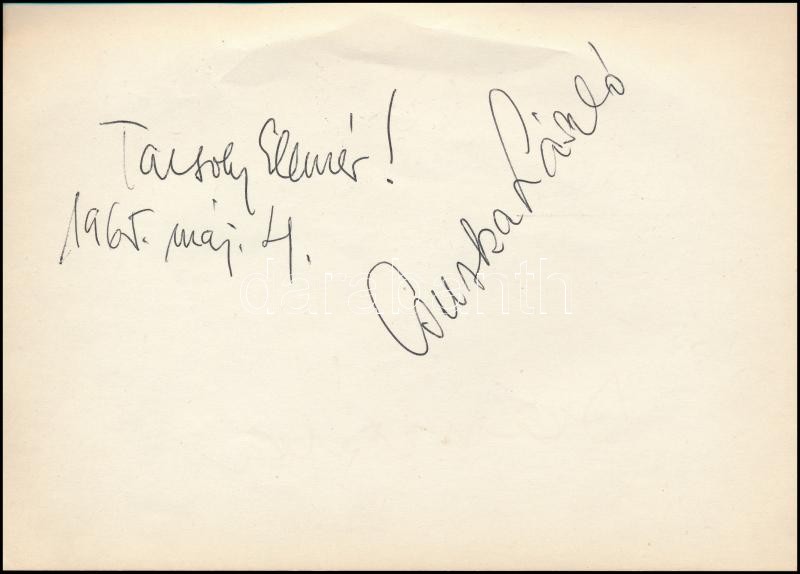 Tarsoly Elemér!
1965. máj. 4.
Csuska László
darabanth